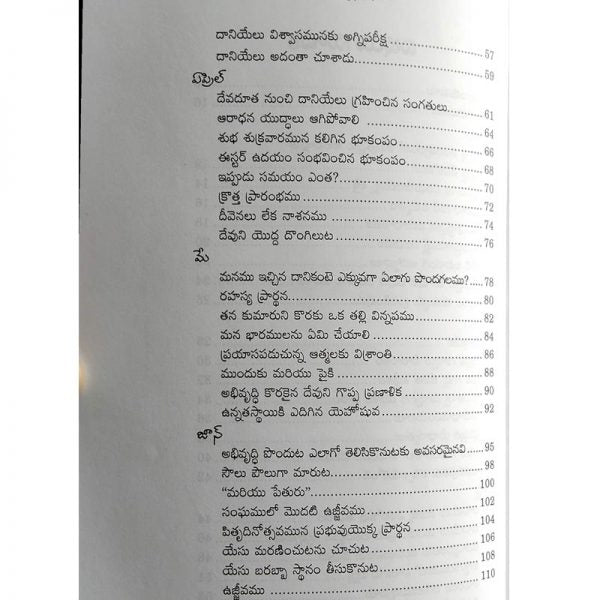 దానియేలు విశ్వాసమునకు అగ్నిపరీక్ష ........................ 57
దానియేలు అదంతా చూశాడు.............................. 59
ఏప్రిల్
దేవదూత నుంచి దానియేలు గ్రహించిన సంగతులు....... 61
ఆరాధన యుద్ధాలు ఆగిపోవాలి ........................... 64
శుభ శుక్రవారమున కలిగిన భూకంపం................... 66
ఈస్టర్ ఉదయం సంభవించిన భూకంపం................. 68
ఇప్పుడు సమయం ఎంత?................................ 70
క్రొత్త ప్రారంభము ....................................... 72
దీవెనలు లేక నాశనము ................................. 74
దేవుని యొద్ద దొంగిలుట ................................. 76
మే
మనము ఇచ్చిన దానికంటె ఎక్కువగా ఏలాగు పొందగలము?.....78
రహస్య ప్రార్థన............................................ 80
తన కుమారుని కొరకు ఒక తల్లి విన్నపము .............. 82
మన భారములను ఏమి చేయాలి ......................... 84
ప్రయాసపడుచున్న ఆత్మలకు విశ్రాంతి ................... 86
ముందుకు మరియు పైకి ................................. 88
అభివృద్ధి కొరకైన దేవుని గొప్ప ప్రణాళిక ................. 90
ఉన్నతస్థాయికి ఎదిగిన యెహోషువ ..................... 92
జూన్
అభివృద్ధి పొందుట ఎలాగో తెలిసికొనుటకు అవసరమైనవి ..... 95
సౌలు పౌలుగా మారుట.................................. 98
“మరియు పేతురు”....................................... 100
సంఘములో మొదటి ఉజ్జీవము ......................... 102
పితృదినోత్సవమున ప్రభువుయొక్క ప్రార్థన ............. 104
యేసు మరణించుటను చూచుట ......................... 106
యేసు బరబ్బా స్థానం తీసుకొనుట....................... 108
ఉజ్జీవము ................................................ 110